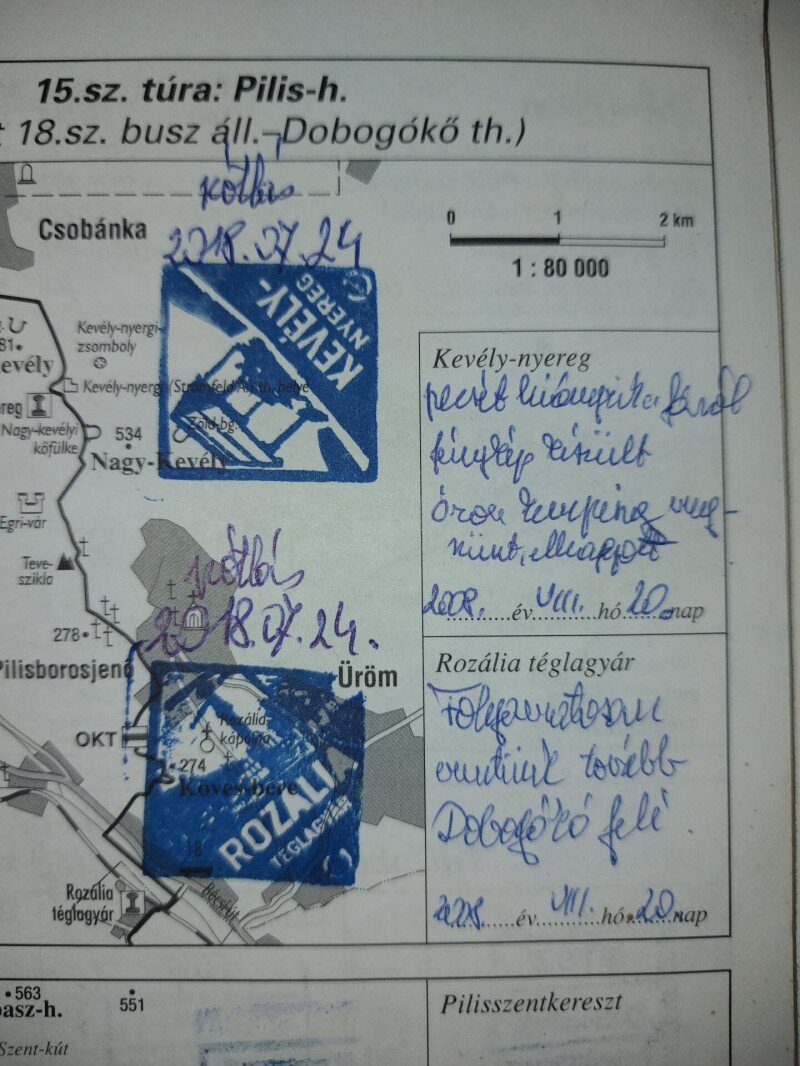 15.sz. túra: Pilis-h.
18.sz. busz áll.–Dobogókő th.)
pótlás
2018.07.24
Csobánka
0 1 2 km
1 : 80 000
KEVÉLY-
NYEREG
Kevély-nyergi-
zsomboly
Kevély-nyergi (Stromfeld A.) th. helye
Nagy-kevélyi
kőfülke
534
Zöld-bg.
Nagy-Kevély
Egri-vár
Teve-
szikla
278
Pilisborosjenő
Kevély-nyereg
pecsét hiányzik a fáról
fénykép készült
2008. év VIII. hó 20. nap
pótlás
2018.07.24.
Üröm
OKT
Rozália-
kápolna
274
Köves-bérc
ROZÁLI
TÉGLAGYÁR
18
Bécsi út
Rozália
téglagyár
Rozália téglagyár
Folyamatosan
mentünk tovább
Dobogókő felé.
2008. év VIII. hó 20. nap
563
551
Szent-kút
Pilisszentkereszt